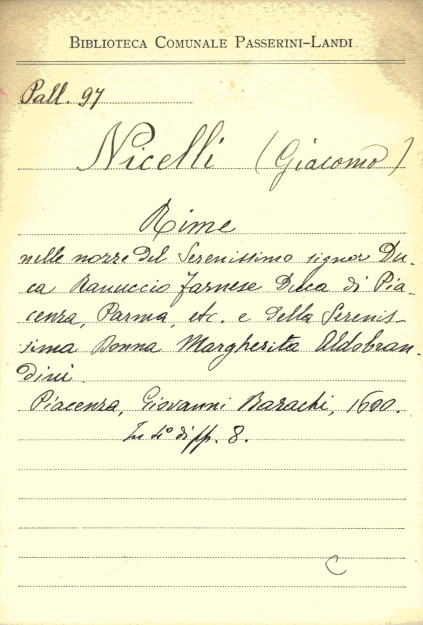 BIBLIOTECA COMUNALE PASSERINI-LANDI
Pall. 97
Nicelli (Giacomo)
Rime
nelle nozze del Serenissimo signor Du-
ca Ranuccio Farnese Duca di Pia-
cenza, Parma, etc. e della Serenis-
sima Donna Margherita Aldobran-
dini.
Piacenza, Giovanni Bazachi, 1600.
In 4° di pp. 8.
C